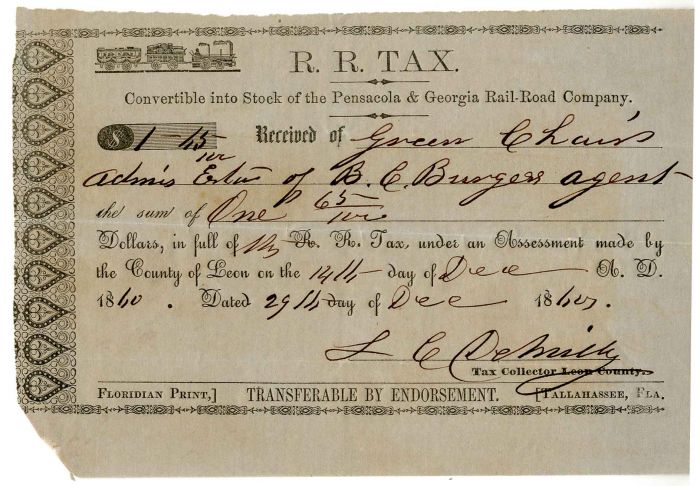 R. R. TAX.
Convertible into Stock of the Pensacola & Georgia Rail-Road Company.
$ 1 65/100 Received of Green Chairs
Admis Estn of B. C. Burgess agent
the sum of One 65/100
Dollars, in full of R. R. Tax, under an Assessment made by
the County of Leon on the 14th day of Dec A. D.
1860. Dated 29th day of Dec 1860.
L C Demilly
Tax Collector Leon County.
FLORIDIAN PRINT,] TRANSFERABLE BY ENDORSEMENT. [TALLAHASSEE, FLA.